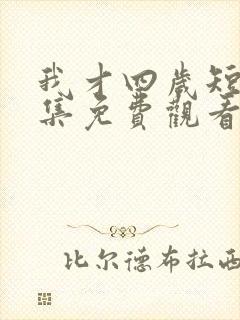 我才四歲短
集免費觀看
比尔德布拉西